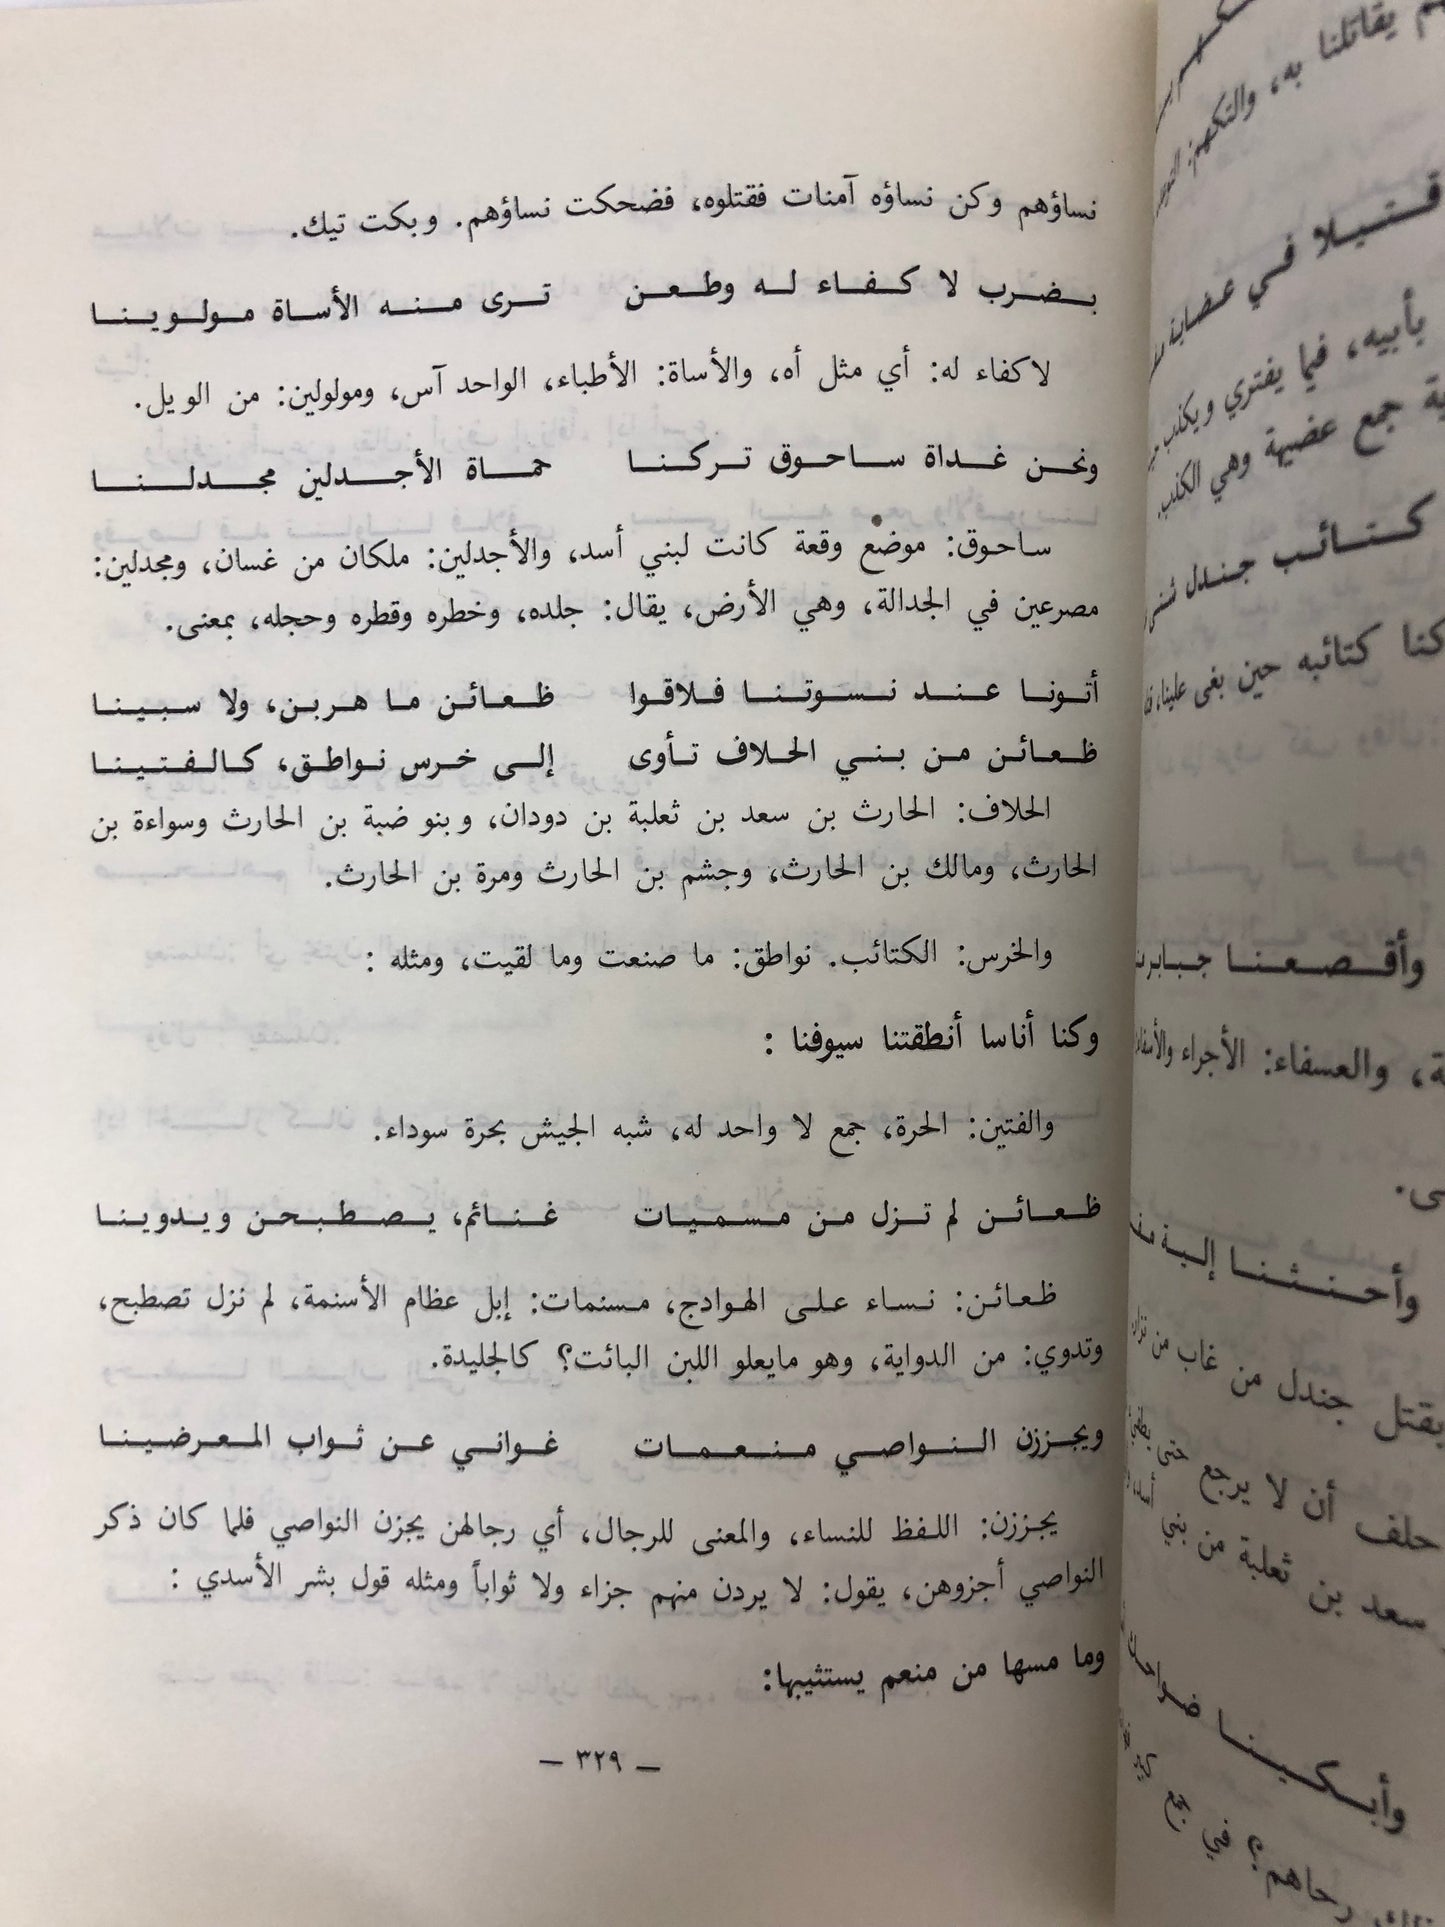 نساؤهم وكن نساؤه آمنات فقتلوه، فضحكت نساؤهم. وبكت تيك.
بضرب لا كفاء له وطعن ترى منه الأساة مولوينا
لا كفاء له: أي مثل أه، والأساة: الأطباء، الواحد آس، ومولولين: من الويل.
ونحن غداة ساحوق تركنا حماة الأجدلين مجدلنا
ساحوق: موضع وقعة كانت لبني أسد، والأجدلين: ملكان من غسان، ومجدلين:
مصرعين في الجدالة، وهي الأرض، يقال: جلده، وخطره وقطره وحجله، بمعنى.
أتونا عند نسوتنا فلاقوا ظعائن ما هربن، ولا سبينا
ظعائن من بني الحلاف تأوى إلى خرس نواطق، كالفتينا
الحلاف: الحارث بن سعد بن ثعلبة بن دودان، وبنو ضبة بن الحارث وسواءة بن
الحارث، ومالك بن الحارث، وجشم بن الحارث ومرة بن الحارث.
والخرس: الكتائب. نواطق: ما صنعت وما لقيت، ومثله :
وكنا أناسا أنطقتنا سيوفنا :
والفتين: الحرة، جمع لا واحد له، شبه الجيش بحرة سوداء.
ظعائن لم تزل من مسميات غنائم، يصطبحن ويدوينا
ظعائن: نساء على الهوادج، مسنمات: إبل عظام الأسنمة، لم نزل تصطبح،
وتدوي: من الدواية، وهو مايعلو اللبن البائت؟ كالجليدة.
ويجززن النواصي منعمات غواني عن ثواب المعرضينا
يجززن: اللفظ للنساء، والمعنى للرجال، أي رجالهن يجزن النواصي فلما كان ذكر
النواصي أجزوهن، يقول: لا يردن منهم جزاء ولا ثواباً ومثله قول بشر الأسدي :
وما مسها من منعم يستثيبها:
— ٣٢٩ —
يقاتلنا به، والتكهم:
قتيلا في عضاية
يأبيه، فيما يفتري ويكذب
جمع عضيهة وهي الكذب.
كتائب جندل
كنا كتائبه حين بغى علينا،
وأقصعنا
والعسفاء: الأجراء
وأحنثنا إلية
يقتل جندل من غاب من
حلف أن لا يرجع حتى
سعد بن ثعلبة من بني
وأبكينا ضواحك
رحاهم؟ في جمع